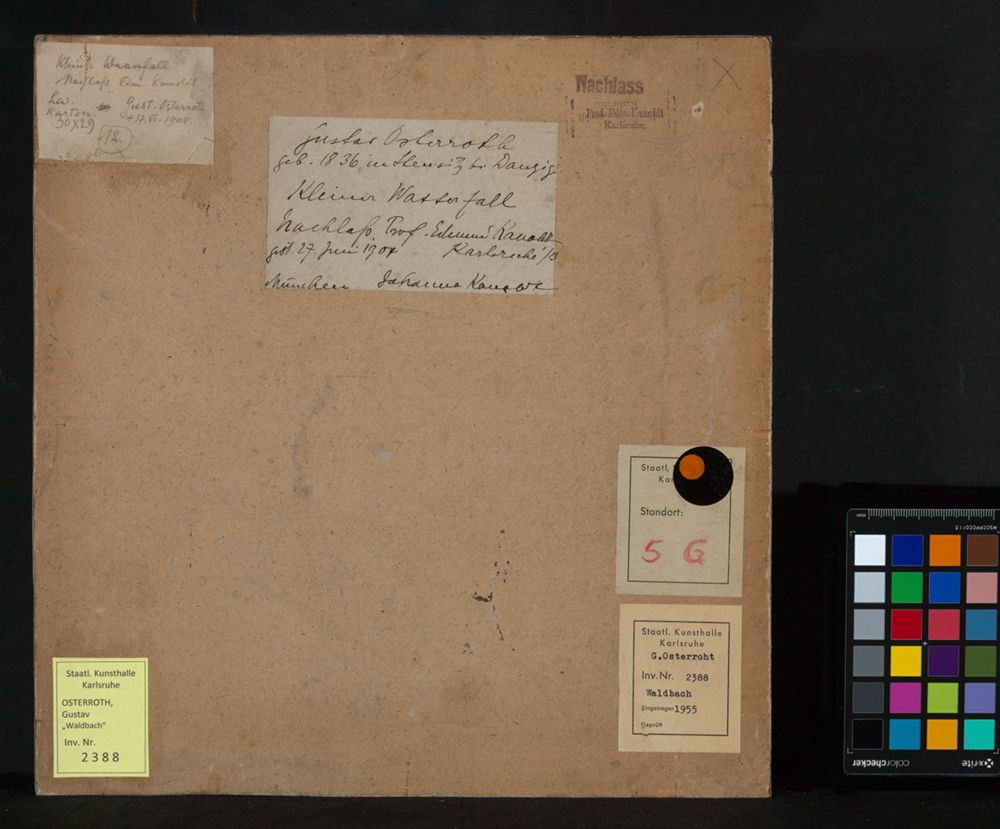 Klein. Wasserfall
Nachlaß Edm Kanoldt
Lw.
Karton.
30x29
Gust. Osterroth
12
Nachlass
Prof. Edm. Kanoldt
Karlsruhe.
Gustav Osterroth
geb. 1836 in Stensitz bei Danzig.
Kleiner Wasserfall
Nachlaß. Prof. Edmund Kanoldt
gest. 27 Juni 1904 Karlsruhe /B
München Johanna Kanoldt
Staatl.
Kar
Standort:
5 G
Staatl. Kunsthalle
Karlsruhe
G.Osterroht
Inv. Nr. 2388
Waldbach
Eingetragen 1955
Geprüft
Staatl. Kunsthalle
Karlsruhe
OSTERROTH,
Gustav
„Waldbach"
Inv. Nr.
2388
MSCCPPCC0113
colorchecker
x-rite